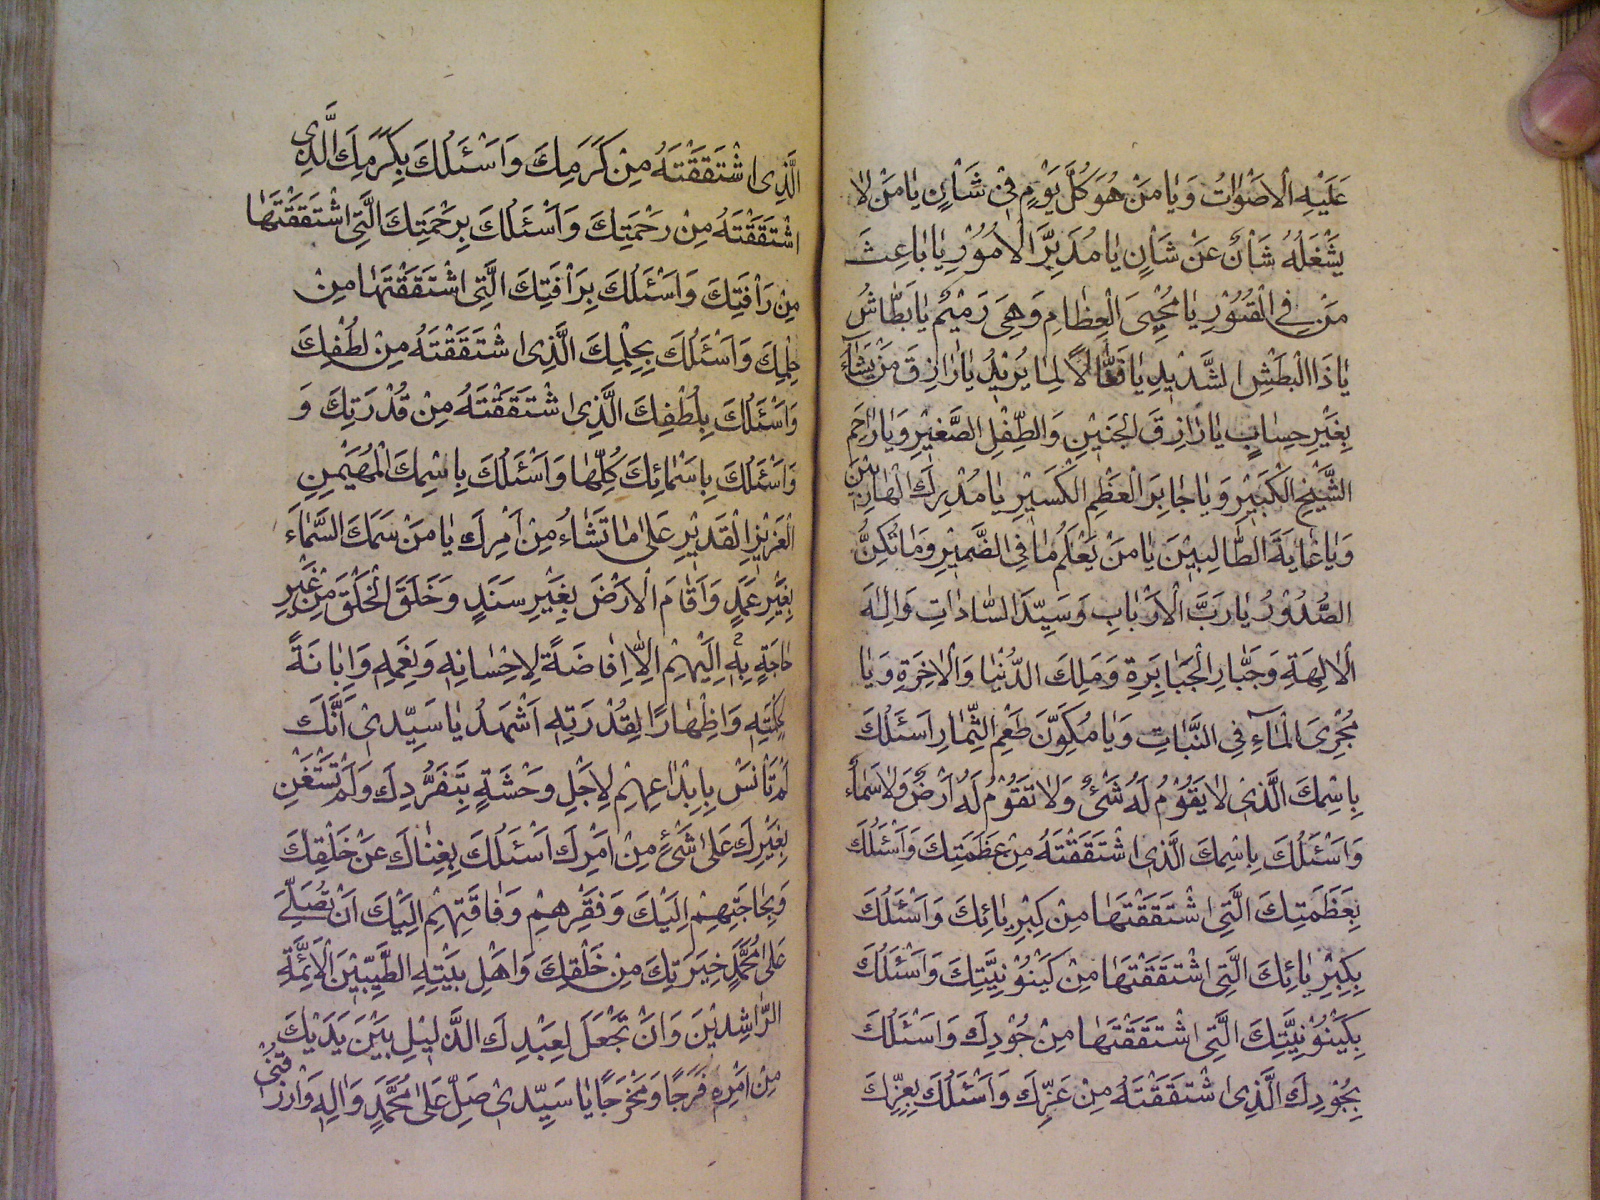 عَلَيْهِ الْاَصْوٰاتُ وَيٰا مَنْ هُوَ كُلَّ يَوْمٍ فِيْ شَأْنٍ يٰا مَنْ لٰا
يَشْغَلُهُ شَأْنٌ عَنْ شَأْنٍ يٰا مُدَبِّرَ الْاُمُوْرِ يٰا بٰاعِثَ
مَنْ فِي الْقُبُوْرِ يٰا مُحْيِيَ الْعِظٰامِ وَهِيَ رَمِيْمٌ يٰا بَطّٰاشُ
يٰا ذَا الْبَطْشِ الشَّدِيْدِ يٰا فَعّٰالًا لِمٰا يُرِيْدُ يٰا رٰازِقَ مَنْ يَشٰآءُ
بِغَيْرِ حِسٰابٍ يٰا رٰازِقَ الْجَنِيْنِ وَالطِّفْلِ الصَّغِيْرِ وَيٰا رٰاحِمَ
الشَّيْخِ الْكَبِيْرِ وَيٰا جٰابِرَ الْعَظْمِ الْكَسِيْرِ يٰا مُدْرِكَ الْهٰارِبِيْنَ
وَيٰا غٰايَةَ الطّٰالِبِيْنَ يٰا مَنْ يَعْلَمُ مٰا فِي الضَّمِيْرِ وَمٰا تُكِنُّ
الصُّدُوْرُ يٰا رَبَّ الْاَرْبٰابِ وَسَيِّدَ السّٰادٰاتِ وَاِلٰهَ
الْاٰلِهَةِ وَجَبّٰارَ الْجَبٰابِرَةِ وَمَلِكَ الدُّنْيٰا وَالْاٰخِرَةِ وَيٰا
مُجْرِيَ الْمٰآءِ فِي النَّبٰاتِ وَيٰا مُكَوِّنَ طَعْمِ الثِّمٰارِ اَسْئَلُكَ
بِاسْمِكَ الَّذِيْ لٰا يَقُوْمُ لَهُ شَيْءٌ وَلٰا تَقُوْمُ لَهُ اَرْضٌ وَلٰا سَمٰاءٌ
وَاَسْئَلُكَ بِاسْمِكَ الَّذِي اشْتَقَقْتَهُ مِنْ عَظَمَتِكَ وَاَسْئَلُكَ
بِعَظَمَتِكَ الَّتِي اشْتَقَقْتَهٰا مِنْ كِبْرِيٰائِكَ وَاَسْئَلُكَ
بِكِبْرِيٰائِكَ الَّتِي اشْتَقَقْتَهٰا مِنْ كَيْنُوْنِيَّتِكَ وَاَسْئَلُكَ
بِكَيْنُوْنِيَّتِكَ الَّتِي اشْتَقَقْتَهٰا مِنْ جُوْدِكَ وَاَسْئَلُكَ
بِجُوْدِكَ الَّذِي اشْتَقَقْتَهُ مِنْ عِزِّكَ وَاَسْئَلُكَ بِعِزِّكَ
الَّذِي اشْتَقَقْتَهُ مِنْ كَرَمِكَ وَاَسْئَلُكَ بِكَرَمِكَ الَّذِي
اشْتَقَقْتَهُ مِنْ رَحْمَتِكَ وَاَسْئَلُكَ بِرَحْمَتِكَ الَّتِي اشْتَقَقْتَهٰا
مِنْ رَاْفَتِكَ وَاَسْئَلُكَ بِرَاْفَتِكَ الَّتِي اشْتَقَقْتَهٰا مِنْ
حِلْمِكَ وَاَسْئَلُكَ بِحِلْمِكَ الَّذِي اشْتَقَقْتَهُ مِنْ لُطْفِكَ
وَاَسْئَلُكَ بِلُطْفِكَ الَّذِي اشْتَقَقْتَهُ مِنْ قُدْرَتِكَ وَ
وَاَسْئَلُكَ بِاَسْمٰائِكَ كُلِّهٰا وَاَسْئَلُكَ بِاسْمِكَ الْمُهَيْمِنِ
الْعَزِيْزِ الْقَدِيْرِ عَلٰى مٰا تَشٰاءُ مِنْ اَمْرِكَ يٰا مَنْ سَمَكَ السَّمٰاءَ
بِغَيْرِ عَمَدٍ وَاَقٰامَ الْاَرْضَ بِغَيْرِ سَنَدٍ وَخَلَقَ الْخَلْقَ مِنْ غَيْرِ
حٰاجَةٍ بِهٖ اِلَيْهِمْ اِلّٰا اِفٰاضَةً لِاِحْسٰانِهٖ وَنِعَمِهٖ وَاِبٰانَةً
لِحِكْمَتِهٖ وَاِظْهٰارًا لِقُدْرَتِهٖ اَشْهَدُ يٰا سَيِّدِيْ اَنَّكَ
لَمْ تَأْنَسْ بِاِبْدٰاعِهِمْ لِاَجْلِ وَحْشَةٍ بِتَفَرُّدِكَ وَلَمْ تَسْتَعِنْ
بِغَيْرِكَ عَلٰى شَيْءٍ مِنْ اَمْرِكَ اَسْئَلُكَ بِغِنٰاكَ عَنْ خَلْقِكَ
وَبِحٰاجَتِهِمْ اِلَيْكَ وَفَقْرِهِمْ وَفٰاقَتِهِمْ اِلَيْكَ اَنْ تُصَلِّيَ
عَلٰى مُحَمَّدٍ خِيَرَتِكَ مِنْ خَلْقِكَ وَاَهْلِ بَيْتِهِ الطَّيِّبِيْنَ الْاَئِمَّةِ
الرّٰاشِدِيْنَ وَاَنْ تَجْعَلَ لِعَبْدِكَ الذَّلِيْلِ بَيْنَ يَدَيْكَ
مِنْ اَمْرِهٖ فَرَجًا وَمَخْرَجًا يٰا سَيِّدِيْ صَلِّ عَلٰى مُحَمَّدٍ وَاٰلِهٖ وَارْزُقْنِيْ